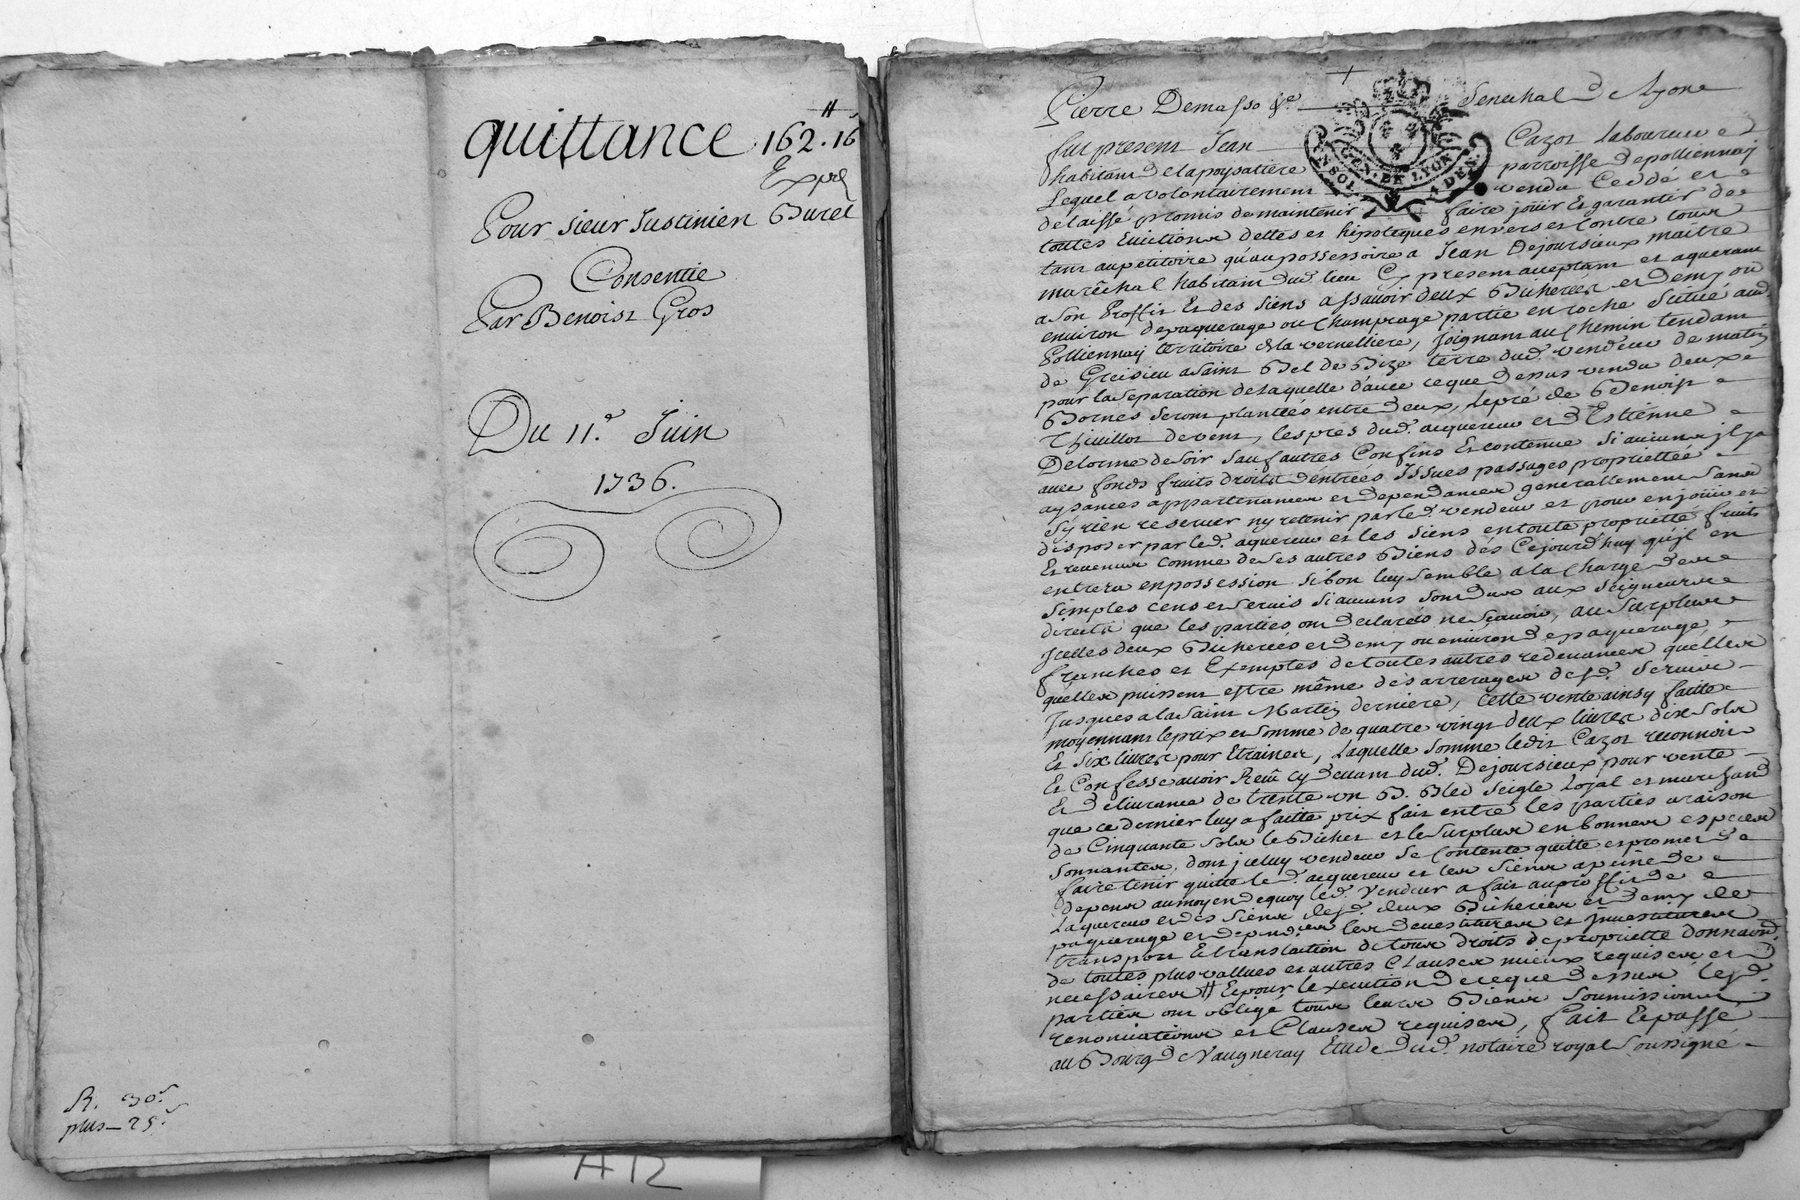 quittance 162.16
Expes
Pour sieur Justinien Burel
Consentie
Par Benoist Gros
Du 11.e Juin
1736.
R. 30.s
plus 25.s
A12
Pierre Demasso &c Senechal de Lyon
GEN. DE LYON
SOL 4 DEN.
fut present Jean Cazot laboureur
habitant de la poysatiere parroisse de polliennay
Lequel a volontairement vendu Ceddé et
delaissé promis de maintenir faire jouir et garantir de
toutes Evictions dettes et hipoteques envers et Contre tous
tant au petitoire qu'au possessoire a Jean Dejoursieux maitre
marêchal habitant dud. lieu Cy present acceptant et aquerant
a son Proffit Et des siens assavoir deux Bicherées et Demy ou
environ de paquerage ou Champeage partie en roche Scitué aud.
Polliennay territoire de la vernelliere, Joignant au Chemin tendant
de Greisieu a Saint Bel de Bize terre dud. vendeur de matin
pour la Separation de laquelle d'avec ce que dessus vendu deux
Bornes seront plantées entre deux, le pré de Benoist
Thivillot de vent, les prés dud. acquereur et d'Estienne
Delorme de soir sauf autres Confins Et contenue si aucuns jl y a
avec fonds fruits droits d'entrées Issues passages proprietté
aysances appartenances et dependances generallement sans
s'y rien reserver ny retenir par led. vendeur et pour en jouir et
disposer par led. aquereur et les siens en toute proprietté fruits
Et revenus comme de ses autres Biens dés Cejourd'huy qu'jl en
entrera en possession si bon luy semble a la Charge des
simples cens et servis si aucuns sont dus aux seigneurs
directs que les parties ont declarés ne sçavoir, au Surplus
jcelles deux Bicherées et demy ou environ de paquerage
franches et Exemptes de toutes autres redevances quelles
quelles puissent estre même des arrerages desd. servis
Jusques a la Saint Martin derniere, Cette vente ainsy faitte
moyennant le prix et somme de quatre vingt deux livres dix sols
Et six livres pour Etraines, Laquelle somme ledit Cazot reconnoit
Et Confesse avoir Reçû cy devant dud. Dejoursieux pour vente
Et delivrance de trente un B. Bled seigle Loyal et marchand
que ce dernier luy a faitte prix fait entre les parties a raison
de Cinquante sols le Bichet et le Surplus en bonnes especes
sonnantes, dont jceluy vendeur se Contente quitte et promet de
faire tenir quitte led. acquereur et les siens a peine de
depens au moyen de quoy led. vendeur a fait au proffit de
L'aquereur et des siens desd. deux Bicherées et demy de
paquerage et dependces les devestitures et Jnvestitures
transport Et translation de tous droits de proprietté Donnaond.
de toutes plus vallues et autres Clauses mieux requises et
necessaires Et pour l'execution de ce que dessus lesd.
parties ont obligé tous leurs Biens soumissions
renonciations et Clauses requises, fait Et passé
au Bourg de Vaugneray Etude dud. notaire royal soussigné